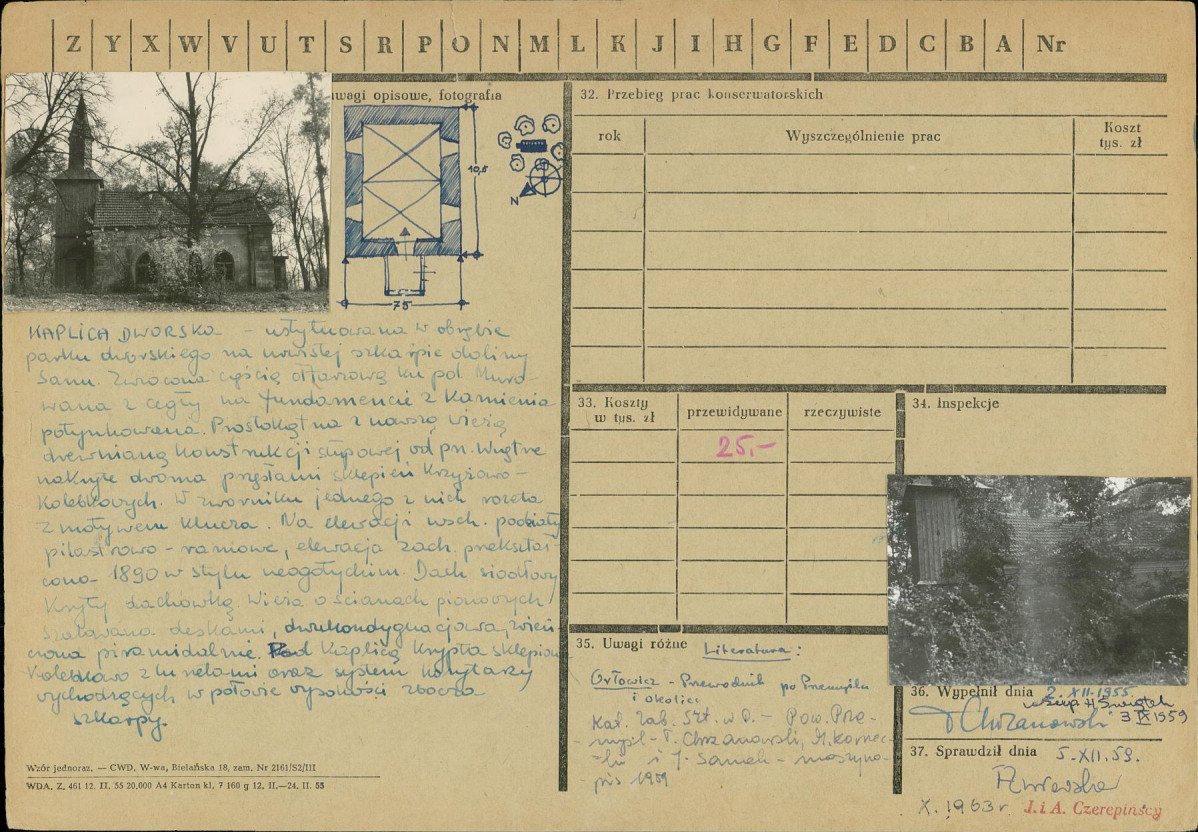 Z Y X W V U T S R P O N M L K J I H G F E D C B A Nr
uwagi opisowe, fotografia
10,5
N
75
KAPLICA DWORSKA – usytuowana w obrębie
parku dworskiego na urwistej szkarpie doliny
Sanu. Zwrócona częścią ołtarzową ku poł. Muro-
wana z cegły na fundamencie z kamienia
potynkowana. Prostokątna z nawszą wieżą
drewnianą konstrukcji słupowej od pn. Wnętrze
nakryte dwoma przęsłami sklepień krzyżowo-
kolebkowych. W zworniku jednego z nich rozeta
z motywem klucza. Na elewacji wsch. podziały
pilastrowo-ramowe, elewacja zach. przekształ-
cona 1890 w stylu neogotyckim. Dach siodłowy
kryty dachówką. Wieża o ścianach pionowych
szalowana deskami, dwukondygnacjowa, zwień-
czona piramidalnie. Pod Kaplicą krypta sklepiona
kolebkowo z tunelami oraz system korytarzy
wychodzących w połowie wysokości zbocza
szkarpy.
Wzór jednoraz. — CWD, W-wa, Bielańska 18, zam. Nr 2161/S2/III
WDA. Z. 461 12. II. 55 20.000 A4 Karton kl. 7 160 g 12. II.—24. II. 55
32. Przebieg prac konserwatorskich
rok Wyszczególnienie prac Koszt
tys. zł
33. Koszty
w tys. zł przewidywane rzeczywiste
25,-
34. Inspekcje
35. Uwagi różne Literatura:
Orłowicz - Przewodnik po Przemyślu
i okolicy
Kat. Zab. Szt. w P. - Pow. Prze-
myśl - T. Chrzanowski, M. Kornec-
ki i J. Samek - maszyno-
pis 1959
36. Wypełnił dnia 2. XII. 1955
T Chrzanowski 3 IX 1959
37. Sprawdził dnia 5. XII. 59.
X. 1963 r J. i A. Czerepińscy